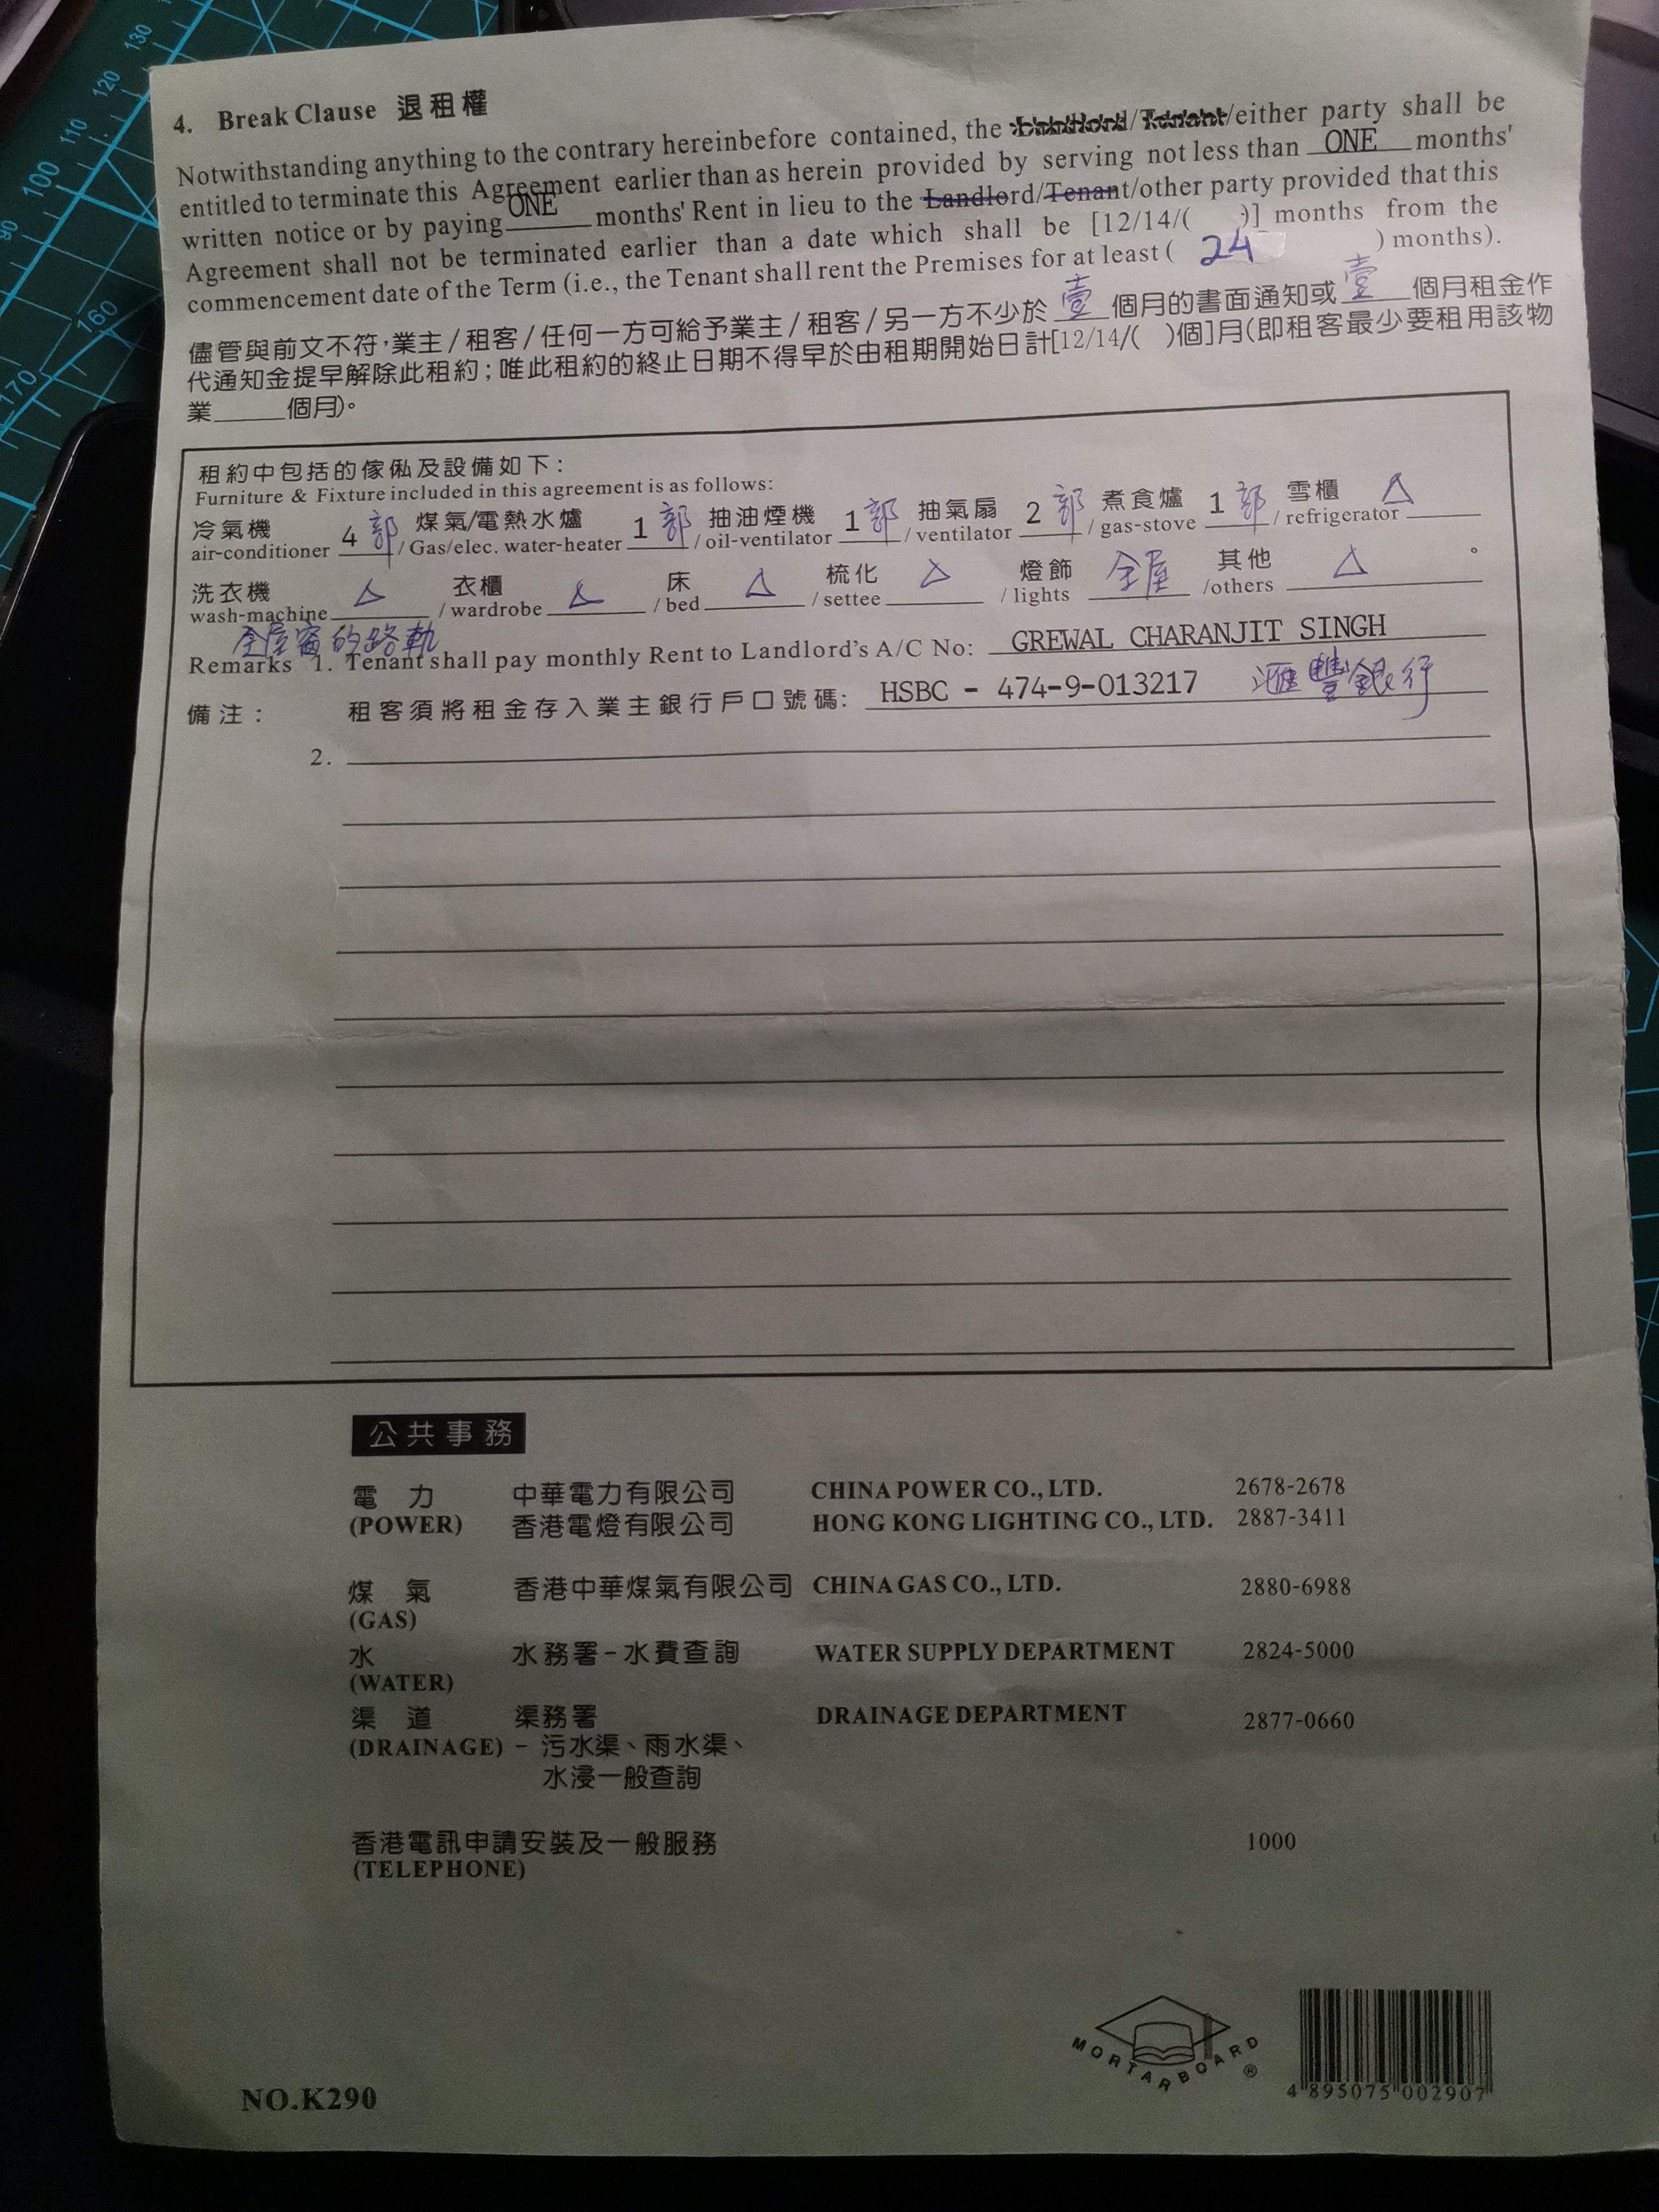 130
120
110
100
90
160
170
4. Break Clause 退租權
Notwithstanding anything to the contrary hereinbefore contained, the Landlord/Tenant/either party shall be
entitled to terminate this Agreement earlier than as herein provided by serving not less than ONE months'
written notice or by paying ONE months' Rent in lieu to the Landlord/Tenant/other party provided that this
Agreement shall not be terminated earlier than a date which shall be [12/14/( )] months from the
commencement date of the Term (i.e., the Tenant shall rent the Premises for at least ( 24 ) months).
儘管與前文不符，業主/租客/任何一方可給予業主/租客/另一方不少於壹個月的書面通知或壹個月租金作
代通知金提早解除此租約；唯此租約的終止日期不得早於由租期開始日計[12/14/( )個]月(即租客最少要租用該物
業____個月)。
租約中包括的傢俬及設備如下：
Furniture & Fixture included in this agreement is as follows:
冷氣機 4部 煤氣/電熱水爐 1部 抽油煙機 1部 抽氣扇 2部 煮食爐 1部 雪櫃 △
air-conditioner / Gas/elec. water-heater / oil-ventilator / ventilator / gas-stove / refrigerator
洗衣機 △ 衣櫃 △ 床 △ 梳化 △ 燈飾 全屋 其他 △ 。
wash-machine / wardrobe / bed / settee / lights /others
全屋窗的路軌
Remarks 1. Tenant shall pay monthly Rent to Landlord's A/C No: GREWAL CHARANJIT SINGH
備注： 租客須將租金存入業主銀行戶口號碼: HSBC - 474-9-013217 滙豐銀行
2.
公共事務
電力 中華電力有限公司 CHINA POWER CO., LTD. 2678-2678
(POWER) 香港電燈有限公司 HONG KONG LIGHTING CO., LTD. 2887-3411
煤氣 香港中華煤氣有限公司 CHINA GAS CO., LTD. 2880-6988
(GAS)
水 水務署-水費查詢 WATER SUPPLY DEPARTMENT 2824-5000
(WATER)
渠道 渠務署 DRAINAGE DEPARTMENT 2877-0660
(DRAINAGE) - 污水渠、雨水渠、
水浸一般查詢
香港電訊申請安裝及一般服務 1000
(TELEPHONE)
MORTARBOARD ®
4 895075 002907
NO.K290